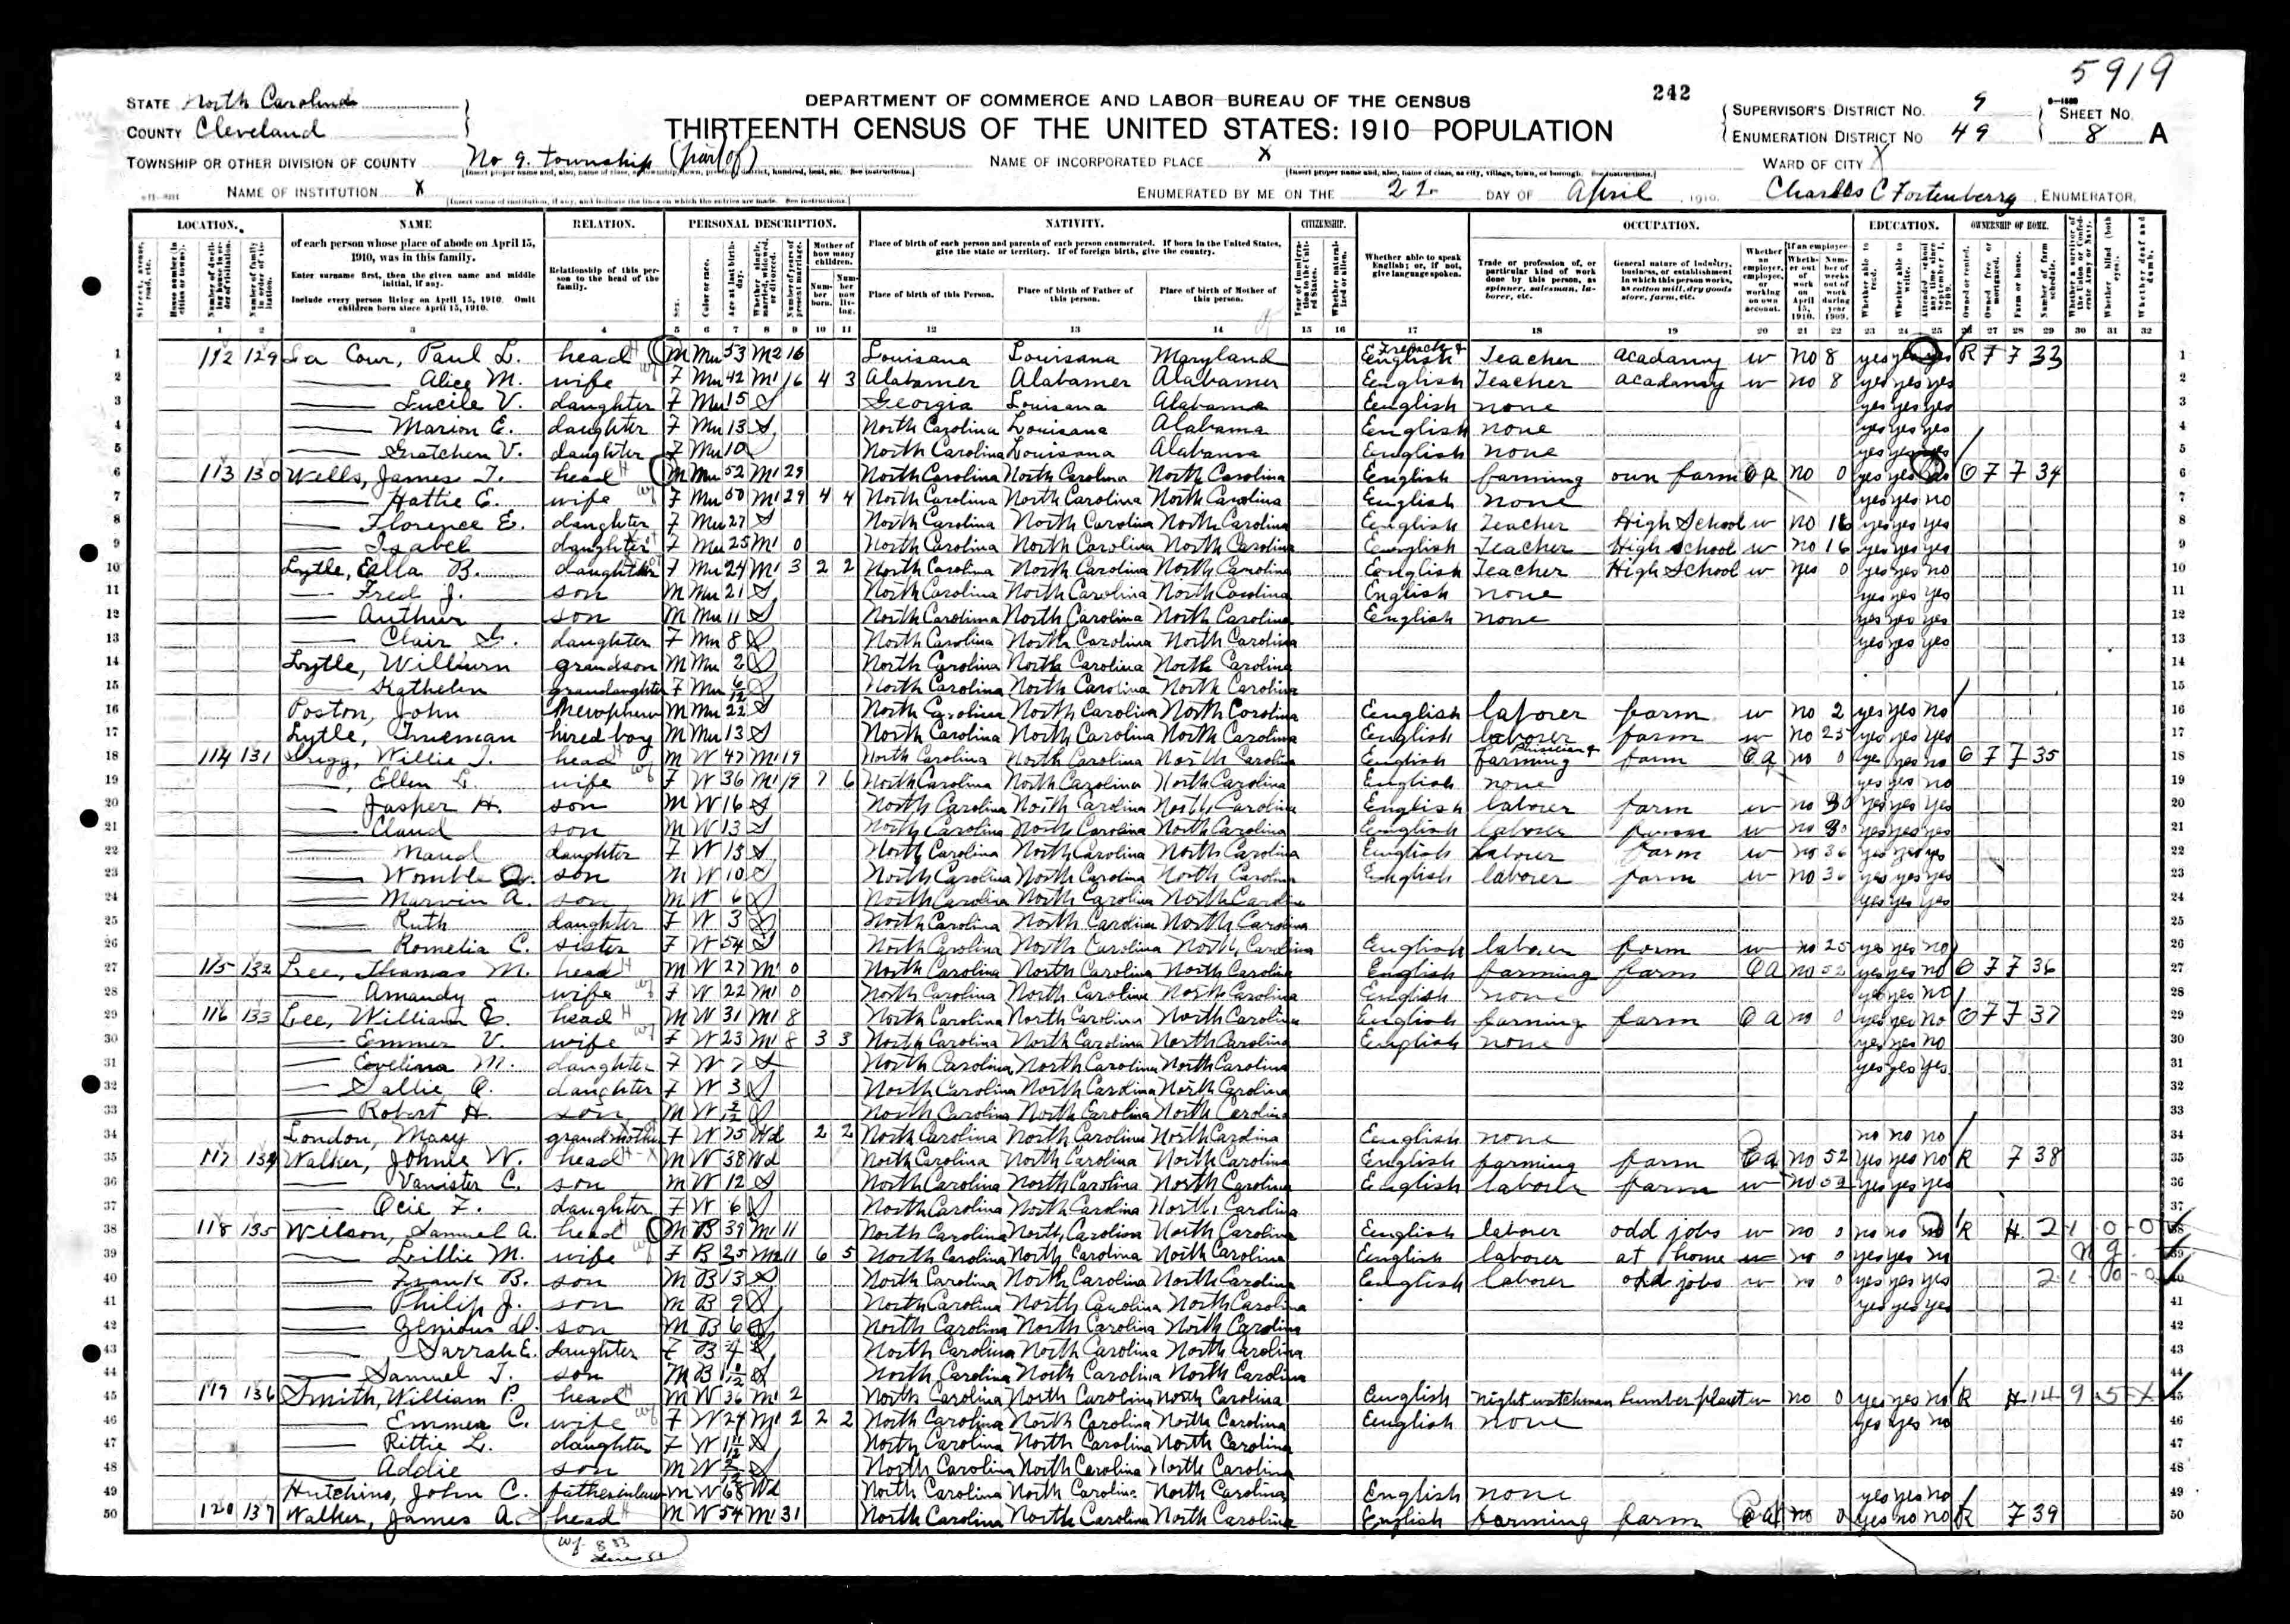 5919
STATE North Carolina
COUNTY Cleveland
242
DEPARTMENT OF COMMERCE AND LABOR-BUREAU OF THE CENSUS
THIRTEENTH CENSUS OF THE UNITED STATES: 1910 POPULATION
SUPERVISOR'S DISTRICT NO. 9
ENUMERATION DISTRICT NO 49
SHEET NO. 8 A
TOWNSHIP OR OTHER DIVISION OF COUNTY No 9. Township (part of)
NAME OF INCORPORATED PLACE X
WARD OF CITY X
NAME OF INSTITUTION X
ENUMERATED BY ME ON THE DAY OF April, 1910. Charles C Fortenberry, ENUMERATOR.
LOCATION. NAME RELATION. PERSONAL DESCRIPTION. NATIVITY. CITIZENSHIP. OCCUPATION. EDUCATION. OWNERSHIP OF HOME.
of each person whose place of abode on April 15, 1910, was in this family.
Enter surname first, then the given name and middle initial, if any.
Include every person living on April 15, 1910. Omit children born since April 15, 1910.
Relationship of this person to the head of the family.
Place of birth of each person and parents of each person enumerated. If born in the United States, give the state or territory. If of foreign birth, give the country.
Place of birth of this Person. Place of birth of Father of this person. Place of birth of Mother of this person.
Whether able to speak English; or, if not, give language spoken.
Trade or profession of, or particular kind of work done by this person, as spinner, salesman, laborer, etc.
General nature of industry, business, or establishment in which this person works, as cotton mill, dry goods store, farm, etc.
1 2 3 4 5 6 7 8 9 10 11 12 13 14 15 16 17 18 19 20 21 22 23 24 25 26 27 28 29 30 31 32
1 112 129 La Cour, Paul L. head M Mu 53 M2 16 Louisana Louisana Maryland French & English Teacher acadamy w no 8 yes yes yes R F F 33
2 Alice M. wife F Mu 42 M1 16 4 3 Alabamer Alabamer Alabamer English Teacher acadamy w no 8 yes yes yes
3 Lucile V. daughter F Mu 15 S Georgia Louisana Alabama English none yes yes yes
4 Marion E. daughter F Mu 13 S North Carolina Louisana Alabama English none yes yes yes
5 Gratchen V. daughter F Mu 10 North Carolina Louisana Alabama English none yes yes yes
6 113 130 Wells, James T. head M Mu 52 M1 29 North Carolina North Carolina North Carolina English farming own farm O a no 0 yes yes O F F 34
7 Hattie E. wife F Mu 50 M1 29 4 4 North Carolina North Carolina North Carolina English none yes yes no
8 Florence E. daughter F Mu 27 S North Carolina North Carolina North Carolina English Teacher High School w no 16 yes yes yes
9 Isabel daughter F Mu 25 M1 0 North Carolina North Carolina North Carolina English Teacher High School w no 16 yes yes yes
10 Lytle, Ella B. daughter F Mu 24 M1 3 2 2 North Carolina North Carolina North Carolina English Teacher High School w yes 0 yes yes no
11 Fred J. son M Mu 21 S North Carolina North Carolina North Carolina English none yes yes yes
12 Authur son M Mu 11 S North Carolina North Carolina North Carolina English none yes yes yes
13 Clair L. daughter F Mu 8 S North Carolina North Carolina North Carolina yes yes yes
14 Lytle, Wilburn grandson M Mu 2 S North Carolina North Carolina North Carolina
15 Kathelen grandaughter F Mu 6/12 S North Carolina North Carolina North Carolina
16 Poston, John M Mu 22 S North Carolina North Carolina North Carolina English laborer farm w no 2 yes yes no
17 Lytle, Trueman hired boy M Mu 13 S North Carolina North Carolina North Carolina English laborer farm w no 25 yes yes yes
18 114 131 Grigg, Willie T. head M W 47 M1 19 North Carolina North Carolina North Carolina English farming & farm O a no 0 yes yes no O F F 35
19 Ellen L. wife F W 36 M1 19 7 6 North Carolina North Carolina North Carolina English none yes yes no
20 Jasper H. son M W 16 S North Carolina North Carolina North Carolina English laborer farm w no 30 yes yes yes
21 Claud son M W 13 S North Carolina North Carolina North Carolina English laborer farm w no 30 yes yes yes
22 Maud daughter F W 15 S North Carolina North Carolina North Carolina English laborer farm w no 36 yes yes yes
23 Womble son M W 10 S North Carolina North Carolina North Carolina English laborer farm w no 36 yes yes yes
24 Marvin A. son M W 6 S North Carolina North Carolina North Carolina yes yes yes
25 Ruth daughter F W 3 S North Carolina North Carolina North Carolina
26 Romelia C. sister F W 54 S North Carolina North Carolina North Carolina English laborer farm w no 25 yes yes no
27 115 132 Lee, Thomas M. head M W 27 M1 0 North Carolina North Carolina North Carolina English farming farm O a no 52 yes yes no O F F 36
28 Amandy wife F W 22 M1 0 North Carolina North Carolina North Carolina English none yes yes no
29 116 133 Lee, William E. head M W 31 M1 8 North Carolina North Carolina North Carolina English farming farm O a no 0 yes yes no O F F 37
30 Emmer V. wife F W 23 M1 8 3 3 North Carolina North Carolina North Carolina English none yes yes no
31 Evelina M. daughter F W 7 S North Carolina North Carolina North Carolina yes yes yes
32 Sallie O. daughter F W 3 S North Carolina North Carolina North Carolina
33 Robert H. son M W S North Carolina North Carolina North Carolina
34 London, Mary grandmother F W 75 Wd 2 2 North Carolina North Carolina North Carolina English none no no no
35 117 134 Walker, Johnie W. head M W 38 Wd North Carolina North Carolina North Carolina English farming farm O a no 52 yes yes no R F 38
36 Vanister C. son M W 12 S North Carolina North Carolina North Carolina English laborer farm w no 52 yes yes yes
37 Ocie F. daughter F W 6 S North Carolina North Carolina North Carolina
38 118 135 Wilson, Samuel A. head M B 39 M1 11 North Carolina North Carolina North Carolina English laborer odd jobs w no 0 no no no R H 2-1-0-0
39 Lillie M. wife F B 25 M2 11 6 5 North Carolina North Carolina North Carolina English laborer at home w no 0 yes yes no
40 Frank B. son M B 13 S North Carolina North Carolina North Carolina English laborer odd jobs w no 0 yes yes yes 2-1-0-0
41 Philip J. son M B 9 S North Carolina North Carolina North Carolina yes yes yes
42 Zenious D. son M B 6 S North Carolina North Carolina North Carolina
43 Sarrah E. daughter F B 4 S North Carolina North Carolina North Carolina
44 Samuel T. son M B 10/12 S North Carolina North Carolina North Carolina
45 119 136 Smith, William P. head M W 36 M1 2 North Carolina North Carolina North Carolina English night watchman Lumber plant w no 0 yes yes no R H 14 9 5 X
46 Emmer C. wife F W 27 M1 2 2 2 North Carolina North Carolina North Carolina English none yes yes no
47 Rittie L. daughter F W 1 11/12 S North Carolina North Carolina North Carolina
48 Addie son M W S North Carolina North Carolina North Carolina
49 Hutchins, John C. father in law M W 68 Wd North Carolina North Carolina North Carolina English none yes yes no
50 120 137 Walker, James A. head M W 54 M1 31 North Carolina North Carolina North Carolina English farming farm O a no 0 yes no no R F 39